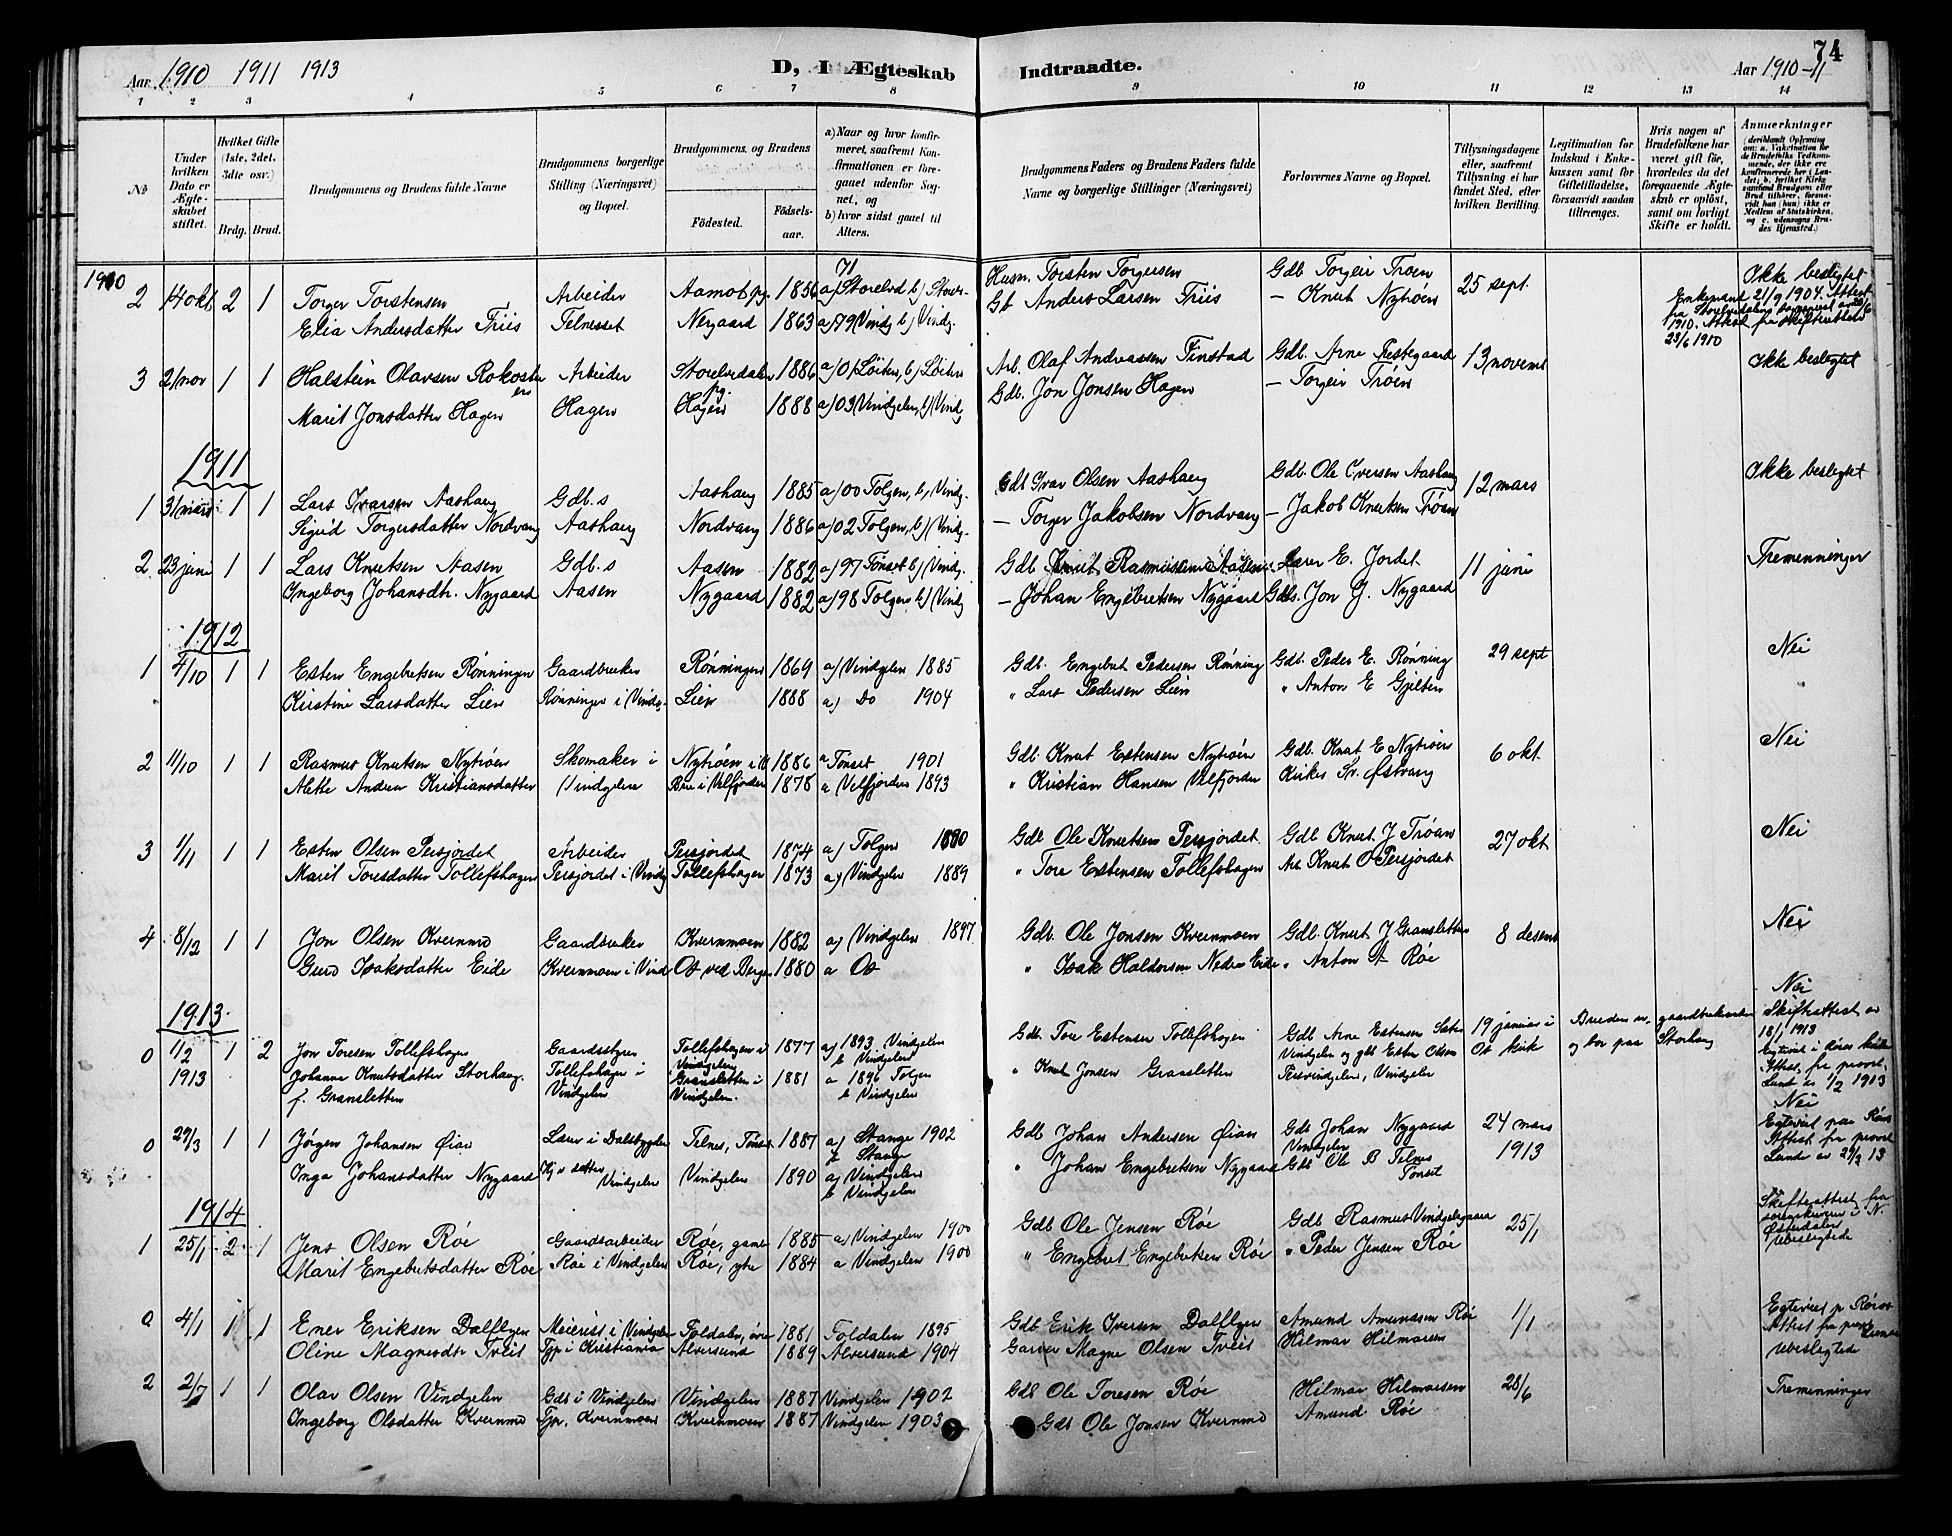 74
Aar 1910 1911 1913 D, I Ægteskab Indtraadte. Aar 1910-11
1 2 3 4 5 6 7 8 9 10 11 12 13 14
№
Under hvilken Dato er Ægteskabet stiftet.
Hvilket Gifte (1ste, 2det, 3die osv.)
Brdg. Brud.
Brudgommens og Brudens fulde Navne
Brudgommens borgerlige Stilling (Næringsvei) og Bopæl.
Brudgommens og Brudens
Födested. Födselsaar.
a) Naar og hvor konfirmeret, saafremt Konfirmationen er foregaaet udenfor Sognet, og
b) hvor sidst gaaet til Alters.
Brudgommens Faders og Brudens Faders fulde Navne og borgerlige Stillinger (Næringsvei)
Forlovernes Navne og Bopæl.
Tillysningsdagene eller, saafremt Tillysning ei har fundet Sted, efter hvilken Bevilling.
Legitimation for Indskud i Enkekassen samt for Giftetilladelse, forsaavidt saadan tiltrænges.
Hvis nogen af Brudefolkene har været gift för, hvorledes da det foregaaende Ægteskab er oplöst, samt om lovligt Skifte er holdt.
Anmærkninger
1910
2 14 okt 2 1 Torger Torstensen Arbeider Aamot pg. 1856 a) 71 Storelvd b) Storelv. Husm. Torsten Torgersen Gdb Torgeir Trøen 25 sept. Ikke beslegtet
Elia Andersdatter Friis Telnesset Nergaard 1863 a) 79 Vindg b) Vindg. Gb Anders Larsen Friis – Knut Nytrøen
Enkemand 21/9 1904. Attest fra
1910. Attest fra Skifteretten
23/6 1910
3 21 nov 1 1 Halstein Olavsen Rokosteren Arbeider Storelvedalen pg. 1886 a) 01 Løiten, b) Løiten Arb. Olaf Andreassen Finstad Gdb. Arne 13 novemb Ikke beslegtet
Marit Jonsdatter Hagen Hagen Hagen 1888 a) 03 Vindgelen, b) Vind. Gdb. Jon Jonsen Hagen – Torgeir Trøen
1911
1 31 mars 1 1 Lars Ivarsen Aashaug Gdb.s Aashaug 1885 a) 00 Tolgen, b) Vindg. Gdb Ivar Olsen Aashaug Gdb. Ole Iversen Aashaug 12 mars Ikke beslegtet
Sigrid Torgersdatter Nordvang Aashaug Nordvang 1886 a) 02 Tolgen, b) Vindg. – Torger Jakobsen Nordvang – Jakob Knutsen Trøan
2 23 juni 1 1 Lars Knutsen Aasen Gdb.s Aasen 1882 a) 97 Tönset b) Vindg. Gdb Knut Rasmussen Aasen Lærer E. Jordet 11 juni Tremenninger
Ingeborg Johansdtr. Nygaard Aasen Nygaard 1882 a) 98 Tolgen, b) Vindg – Johan Engebretsen Nygaard Gdb. Jon J. Nygaard
1912
1 4/10 1 1 Esten Engebretsen Rønningen Gaardbruker Rønningen 1869 a) Vindgelen 1885 Gdb. Engebret Pedersen Rønning Gdb. Peder E. Rønning 29 sept Nei
Kirstine Larsdatter Lien Rønningen i Vindg. Lien 1888 a) Do 1904 " Lars Pedersen Lien " Anton E Gjelten
2 11/10 1 1 Rasmus Knutsen Nytrøen Skomaker i Nytröen i V 1886 a Tönset 1901 Gdb. Knut Estensen Nytröen Gdb. Knut E Nytröen 6 okt Nei
Alette Andrea Kristiansdatter Vindgelen i Velfjorden 1878 a Velfjorden 1893 " Kristian Hansen Velfjorden Kirkes. Østvang
3 1/11 1 1 Esten Olsen Persjordet Arbeider Persjordet 1874 a) Tolgen 1890 Gdb Ole Knutsen Persjordet Gdb Knut J Trøan 27 okt Nei
Marit Toresdatter Tollefshagen Persjordet i Vindg Tollefshagen 1873 a) Vindgelen 1889 " Tore Estensen Tollefshagen Arb. Knut O Persjordet
4 8/12 1 1 Jon Olsen Kvernmo Gaardbruker Kvernmoen 1882 a) Vindgelen 1897 Gdb. Ole Jonsen Kvernmoen Gdb. Knut J Gransletten 8 desemb Nei
Guro Isaksdatter Eide Kvernmoen i Vind Os ved Bergen 1880 a Os " Isak Haldorsen Nedre Eide " Anton A Røe
1913.
0 1/2 1913 1 2 Jon Toresen Tollefshagen Gaardsstyrer Tollefshagen i Vindgelen 1877 a) 1893 Vindgelen b Vindgelen Gdb. Tore Estensen Tollefshagen Gdb Arne Estensen 19 januar i Os kirk
Johanne Knutsdatter Storhaug Tollefshagen i Gransletten i 1881 a 1896 Tolgen " Knut Jonsen Gransletten Vindgelen og gdb Esten Olsen
f. Gransletten Vindgelen Vindgelen. b Vindgelen Persvindgelen, Vindgelen
Bruden er gaardbrukerske og bor paa Storhaug
Nei
Skifteattest av
18/1 1913
Egteviet i Røros kirke
Attest fra provst
Lunde av 1/2 1913
0 29/3 1 1 Jørgen Johansen Øian Lærer i Dalsbygden Telnes, Tönset 1887 a) Stange 1902 b Stange Gdb Johan Andersen Øian Gdb Johan Nygaard Vindgelen 24 mars 1913
Inga Johansdatter Nygaard Kj. datter Vindgelen Vindgelen 1890 a) Vindgelen b Vindgelen " Johan Engebretsen Nygaard Gdb Ole B Telnes Tönset
Nei
Egteviet paa Røros
Attest fra provst
Lunde av 29/3 13
1914
1 25/1 2 1 Jens Olsen Røe Gaardsarbeider Røe, gamle 1885 a) Vindgelen 1900 Gdb Ole Jensen Røe Gdb Rasmus Vindgelsgaard 25/1
Marit Engebretsdatter Røe Røe i Vindgelen Røe, ytre 1884 a Vindgelen 1900 " Engebret Engebretsen Røe " Peder Jensen Røe
Skifteattest fra
sorenskriveren i N.
Østerdalen
Ubeslegtede
0 4/1 1 1 Ener Eriksen Dalflyen Meierist i Vindgelen Foldalen, øvre 1881 Foldalen 1895 Gdb Erik Iversen Dalflyen Amund Amundsen Røe 1/1
Oline Magnesdtr Tveit Tjp i Kristiania Alversund 1889 Alversund 1904 Magne Olsen Tveit Hilmar Hilmarsen
Egteviet p Røros
Attest fra provst Lunde
Ubeslegtede
2 2/7 1 1 Olav Olsen Vindgelen Gdb i Vindgelen Vindgelen 1887 Vindgelen 1902 Gdb Ole Toresen Røe Hilmar Hilmarsen 28/6 Tremenninger
Ingeborg Olsdatter Kvernmo Tjp. Kvernmoen Kvernmoen 1887 Vindgelen 1903 Gdb Ole Jonsen Kvernmo Amund Røe